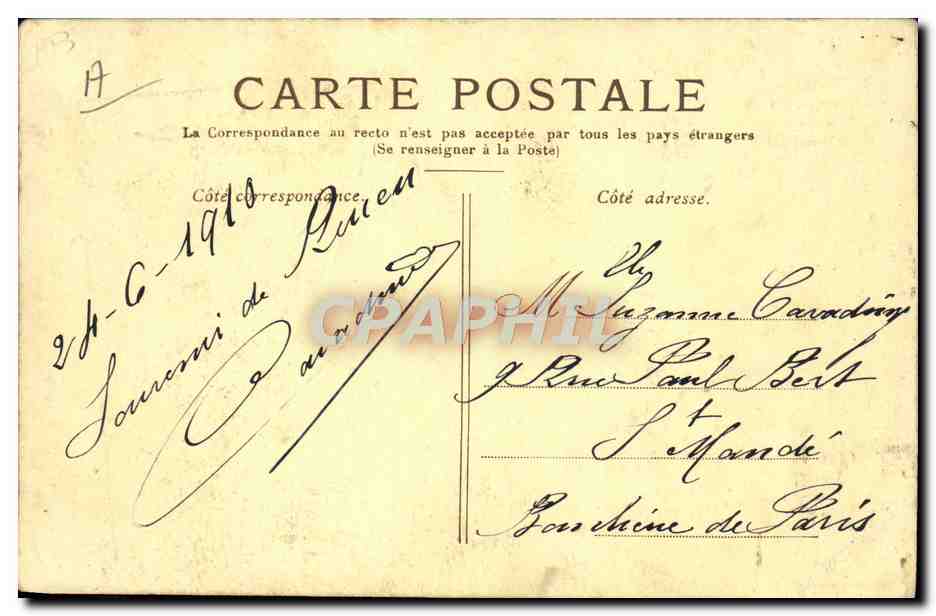 A
CARTE POSTALE
La Correspondance au recto n'est pas acceptée par tous les pays étrangers
(Se renseigner à la Poste)
Côté correspondance.
Côté adresse.
24-6-1910
Souvenir de Rouen
CPAPHIL
Mlle Suzanne
9 Rue Paul Bert
St Mandé
de Paris